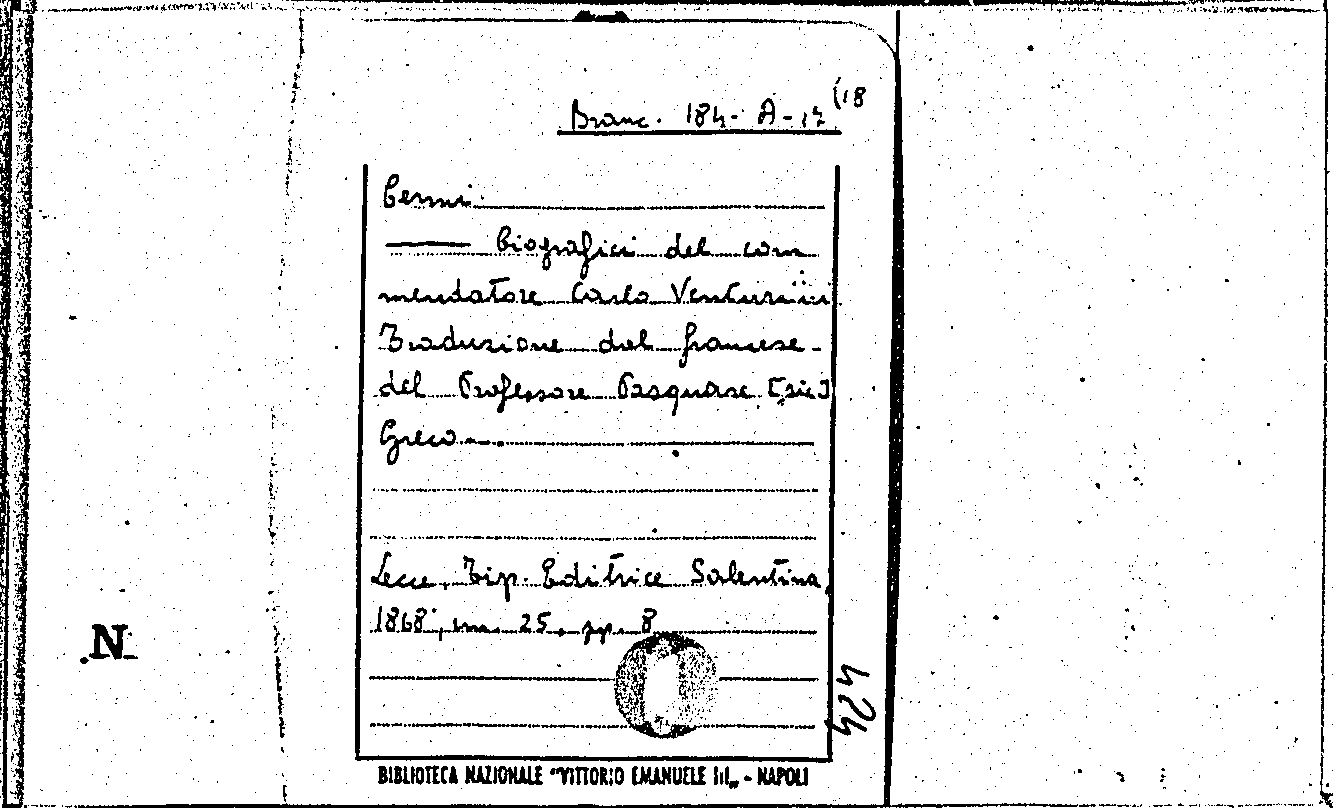 Branc. 184- A-17 (18
Cenni
——— biografici del com
mendatore Carlo Venturini
Traduzione dal francese -
del Professore Pasquare [sic]
Greco -.
Lecce, Tip. Editrice Salentina,
1868, cm. 25, pp. 8
424
N
BIBLIOTECA NAZIONALE "VITTORIO EMANUELE III„ - NAPOLI